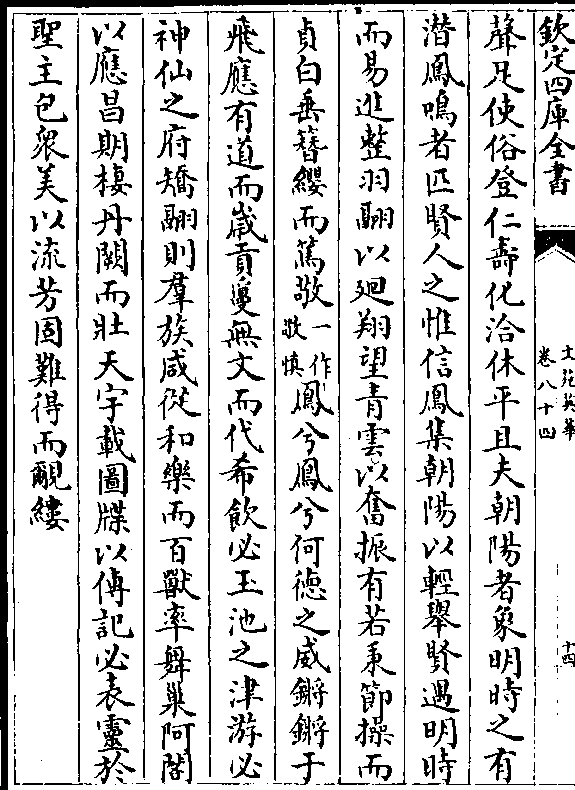 欽定四庫全書
文苑英華
卷八十四
十四
聲足使俗登仁壽化洽休平且夫朝陽者象明時之有
潛鳳鳴者匹賢人之惟信鳳集朝陽以輕舉賢遇明時
而易進整羽翮以廻翔望青雲以奮振有若秉節操而
貞白垂簪纓而篤敬一作敬慎鳳兮鳳兮何德之威鏘鏘于
飛應有道而嵗貢蔓無文而代希飲必玉池之津游必
神仙之府矯翮則羣族咸從和樂而百獸率舞巢阿閣
以應昌期棲丹闕而壯天宇載圖牒以傳記必表靈於
聖主包衆美以流芳固難得而覼縷